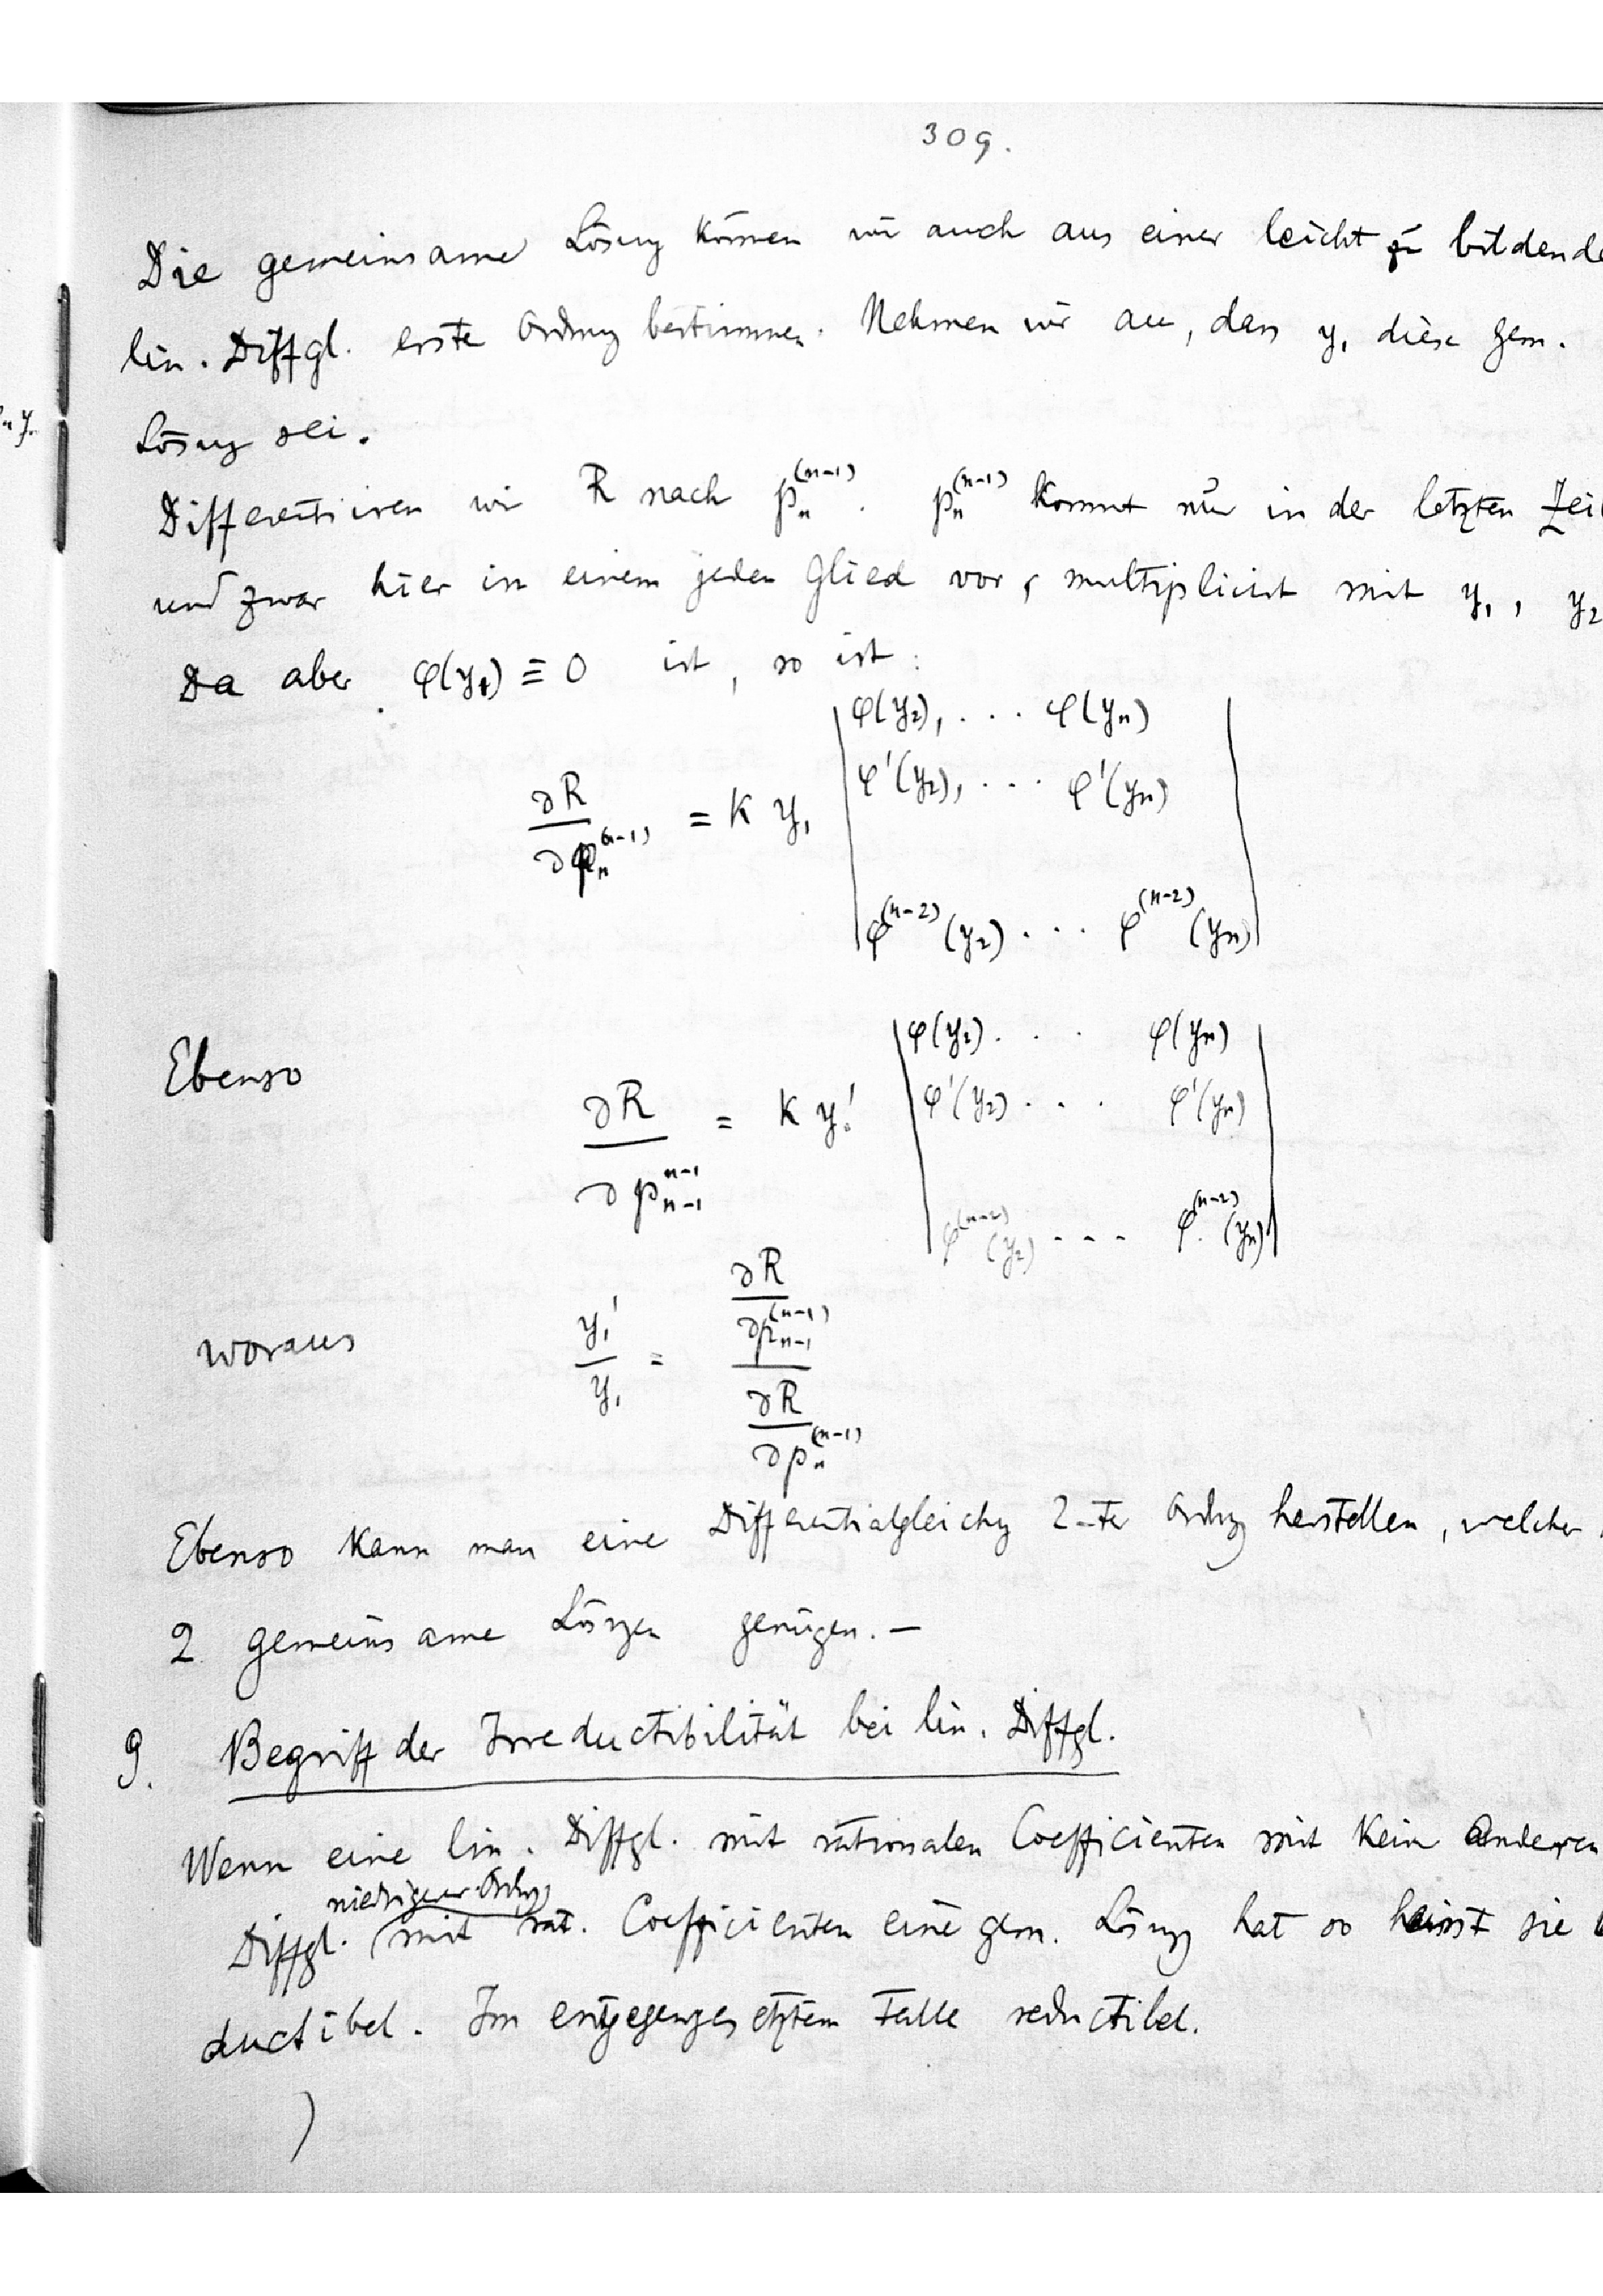 309.
Die gemeinsame Lösung können wir auch aus einer leicht zu bildende
lin. Diffgl. erste Ordnung bestimmen. Nehmen wir an, dass y₁ diese gem.
Lösung sei.
Differentiiren wir R nach pₙ⁽ⁿ⁻¹⁾. pₙ⁽ⁿ⁻¹⁾ kommt nur in der letzten Zeil
und zwar hier in einem jeden Glied vor, multiplicirt mit y₁, y₂
Da aber φ(y₁) ≡ 0 ist, so ist:
∂R / ∂pₙ⁽ⁿ⁻¹⁾ = K y₁ | φ(y₂), ... φ(yₙ)
φ'(y₂), ... φ'(yₙ)
φ⁽ⁿ⁻²⁾(y₂) ... φ⁽ⁿ⁻²⁾(yₙ) |
Ebenso
∂R / ∂pₙ₋₁ⁿ⁻¹ = K y₁' | φ(y₂) . . . φ(yₙ)
φ'(y₂) . . . φ'(yₙ)
φ⁽ⁿ⁻²⁾(y₂) . . . φ⁽ⁿ⁻²⁾(yₙ) |
woraus y₁' / y₁ = (∂R / ∂pₙ₋₁⁽ⁿ⁻¹⁾) / (∂R / ∂pₙ⁽ⁿ⁻¹⁾)
Ebenso kann man eine Differentialgleichg 2-ter Ordng herstellen, welcher
2 gemeinsame Lösgen genügen. —
9. Begriff der Irreductibilität bei lin. Diffgl.
Wenn eine lin. Diffgl. mit rationalen Coefficienten mit kein anderen
niedrigerer Ordng
Diffgl. mit rat. Coefficienten eine gem. Lösng hat so heisst sie
ductibel. Im entgegengesetztem Falle reductibel.